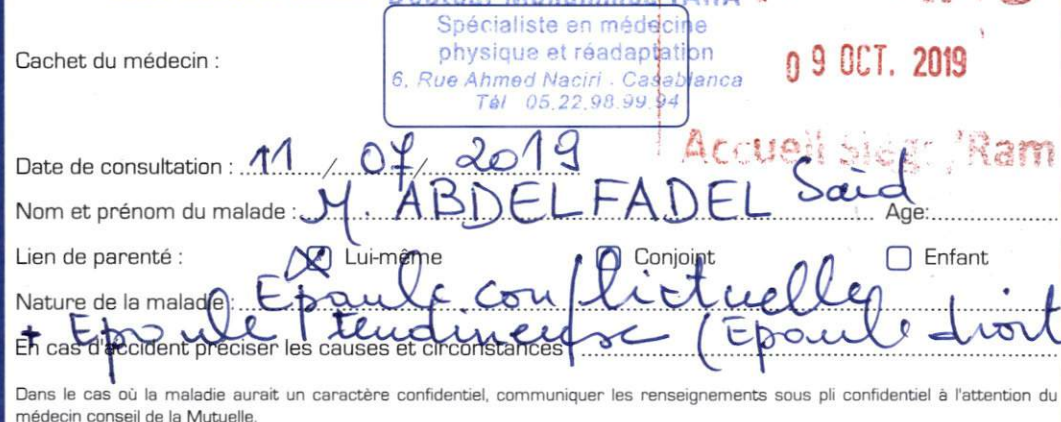 Spécialiste en médecine
physique et réadaptation
6, Rue Ahmed Naciri - Casablanca
Tél 05.22.98.99.94
Cachet du médecin :
09 OCT. 2019
Accueil Siège
Date de consultation : 11 / 07 / 2019
Nom et prénom du malade : M. ABDELFADEL Said Age:
Lien de parenté : Lui-même Conjoint Enfant
Nature de la maladie : Epaule conflictuelle
+ Epaule tendineuse (Epaule droit
En cas d'accident préciser les causes et circonstances
Dans le cas où la maladie aurait un caractère confidentiel, communiquer les renseignements sous pli confidentiel à l'attention du
médecin conseil de la Mutuelle.